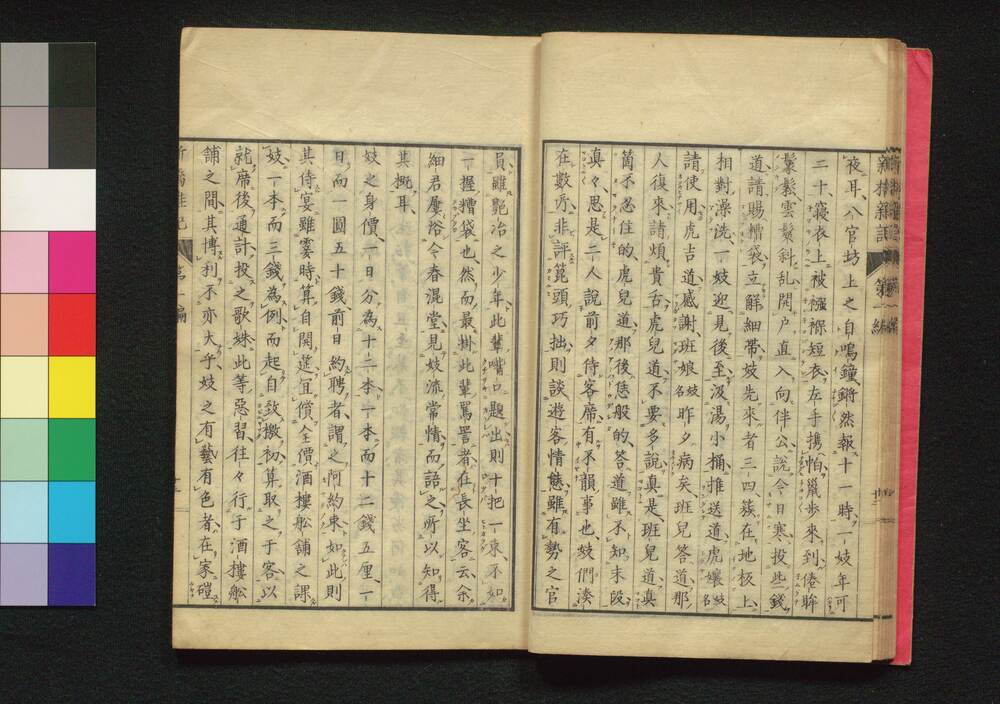 夜耳、八官坊上之自鳴鐘、鏘然報十一時、一妓年可
二十、寝衣上被襁褓短衣、左手携帕、嵐歩來到、倦眸
鬆雲鬢斜乱、開戸直入、向伴公説今日寒、投些錢
道、請賜糟袋、立解細帯、妓先來者三四簇在地板上、
相對澡洗、一妓迎見後至、汲湯小桶、推送道、虎孃妓名
請使用、虎吉道、感謝、班娘妓名昨夕病矣、班兒答道、那
人復來、請煩貴舌、虎兒道、不要多説、真是、班兒道、真
箇不忍住的、虎兒道、那後恁般的、答道、雖不知末段
真々思是二人説前夕待客席有不韻事也、妓們湊
在數次、非評箆頭巧拙、則談遊客情態、雖有勢之官
員、雖艶冶之少年、此輩嘴口題出、則十把一束、不如
一握糟袋也、然而最掛此輩罵詈者在長坐客云、余
細君屢浴今春混堂、見妓流常情而語之、所以知得
其概耳
妓之身價、一日分為十二本、一本而十二錢五厘、一
日而一圓五十錢、前日約聘者謂之阿約束、如此則
其侍宴雖霎時、算自開莚、宜償全價、酒樓舩舗之課
妓、一本而三錢為例、而起自致撒、初算取之于客、以
就席後通計、投之歌妹、此等惡習、往々行于酒樓舩
舗之間、其博利不亦大乎、妓之有藝有色者、在家磑